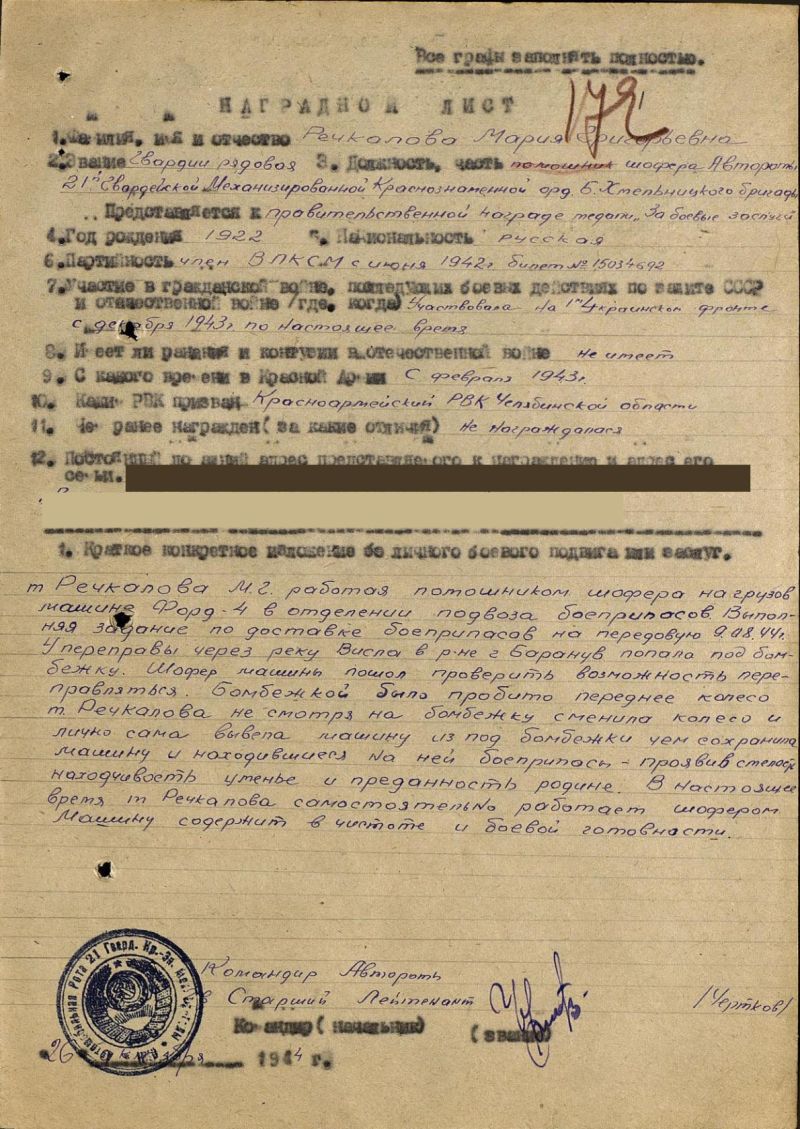 Все графы заполнять полностью.
НАГРАДНОЙ ЛИСТ
178
1. Фамилия, имя и отчество Речкалова Мария Григорьевна
2. Звание Гвардии рядовая 3. Должность, часть помошник шофера Автороты
21й Гвардейской Механизированной Краснознаменной орд. Б. Хмельницкого бригады
Представляется к правительственной награде медали „За боевые заслуги
4. Год рождения 1922 5. Национальность русская
6. Партийность член ВЛКСМ с июня 1942г. билет № 15034692
7. Участие в гражданской войне, последующих боевых действиях по защите СССР
и отечественной войне /где, когда) Участвовала на 1м Украинском фронте
с декабря 1943г по настоящее время
8. Имеет ли ранения и контузии в отечественной войне не имеет
9. С какого времени в Красной Армии С февраля 1943г.
10. Каким РВК призван Красноармейский РВК Челябинской области
11. Чем ранее награжден (за какие отличия) не награждалася
12. Постоянный домашний адрес представляемого к награждению и адрес его
семьи.
1. Краткое конкретное изложение его личного боевого подвига или заслуг.
т Речкалова М.Г. работая помошником шофера на грузов
машине Форд-4 в отделении подвоза боеприпасов. Выпол-
няя задание по доставке боеприпасов на передовую 9.08.44г.
У переправы через реку Висла в р-не г Баранув попала под бом-
бежку. Шофер машины пошол проверить возможность пере-
правляться. Бомбежкой было пробито переднее колесо
т. Речкалова не смотря на бомбежку сменила колесо и
лично сама вывела машину из под бомбежки чем сохранила
машину и находившиеся на ней боеприпасы - проявив смелость
находчивость уменье и преданность родине. В настоящее
время т Речкалова самостоятельно работает шофером
Машину содержит в чистоте и боевой готовности.
Командир Автороты
Старший Лейтенант /Чертков/
Командир (начальник) (звание)
26 1944 г.
Автомобильная Рота 21 Гвард. Кр.-Зн.